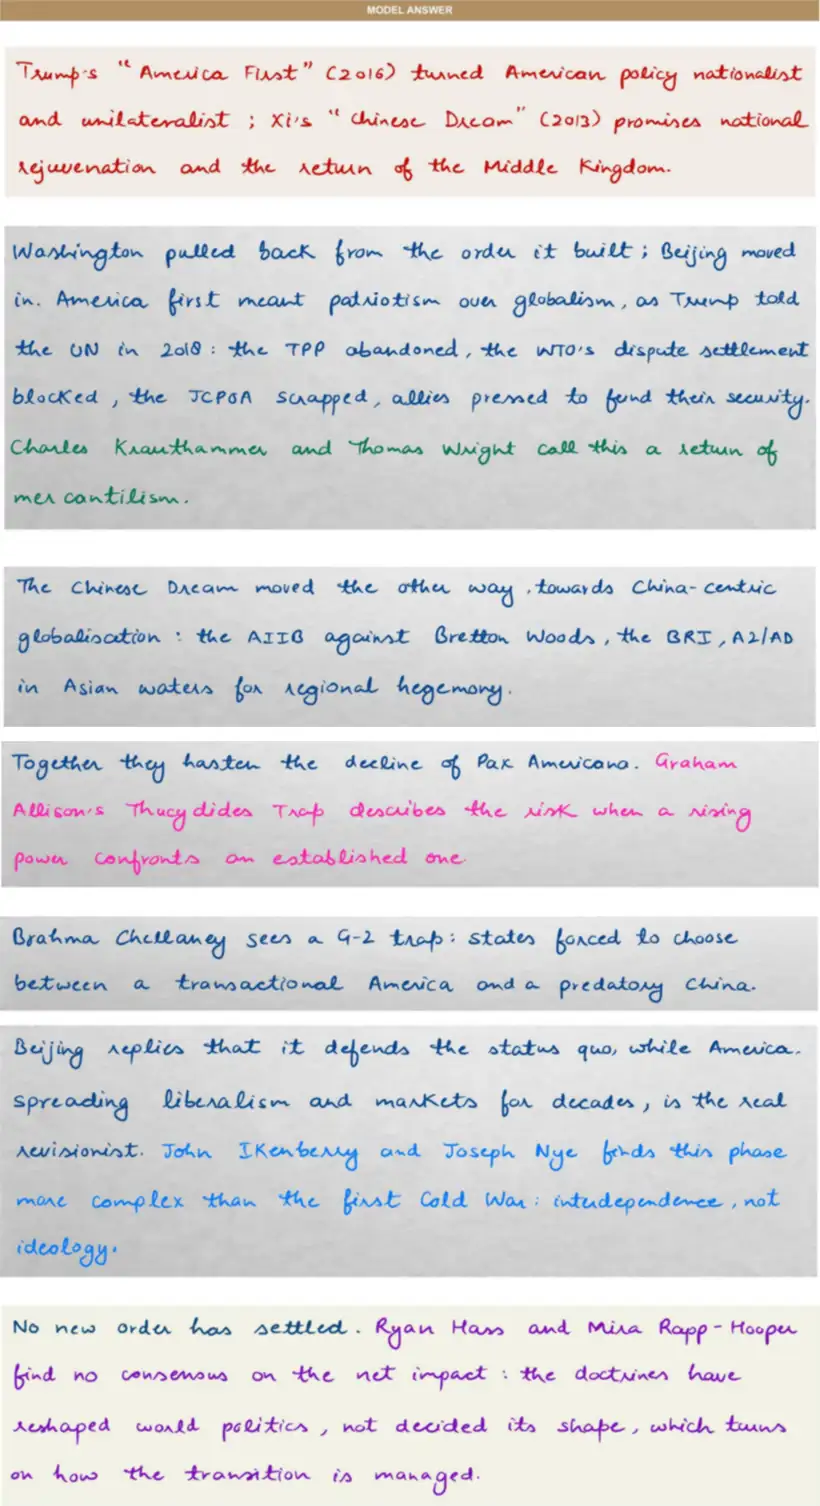 MODEL ANSWER
Trump's "America First" (2016) turned American policy nationalist
and unilateralist ; Xi's "Chinese Dream" (2013) promises national
rejuvenation and the return of the Middle Kingdom.
Washington pulled back from the order it built ; Beijing moved
in. America first meant patriotism over globalism, as Trump told
the UN in 2018 : the TPP abandoned, the WTO's dispute settlement
blocked, the JCPOA scrapped, allies pressed to fund their security.
Charles Krauthammer and Thomas Wright call this a return of
mercantilism.
The Chinese Dream moved the other way, towards China-centric
globalisation : the AIIB against Bretton Woods, the BRI, A2/AD
in Asian waters for regional hegemony.
Together they hasten the decline of Pax Americana. Graham
Allison's Thucydides Trap describes the risk when a rising
power confronts an established one.
Brahma Chellaney sees a G-2 trap: states forced to choose
between a transactional America and a predatory China.
Beijing replies that it defends the status quo, while America.
spreading liberalism and markets for decades, is the real
revisionist. John IKenberry and Joseph Nye finds this phase
more complex than the first Cold War: interdependence, not
ideology.
No new order has settled. Ryan Hass and Mira Rapp-Hooper
find no consensus on the net impact : the doctrines have
reshaped world politics, not decided its shape, which turns
on how the transition is managed.